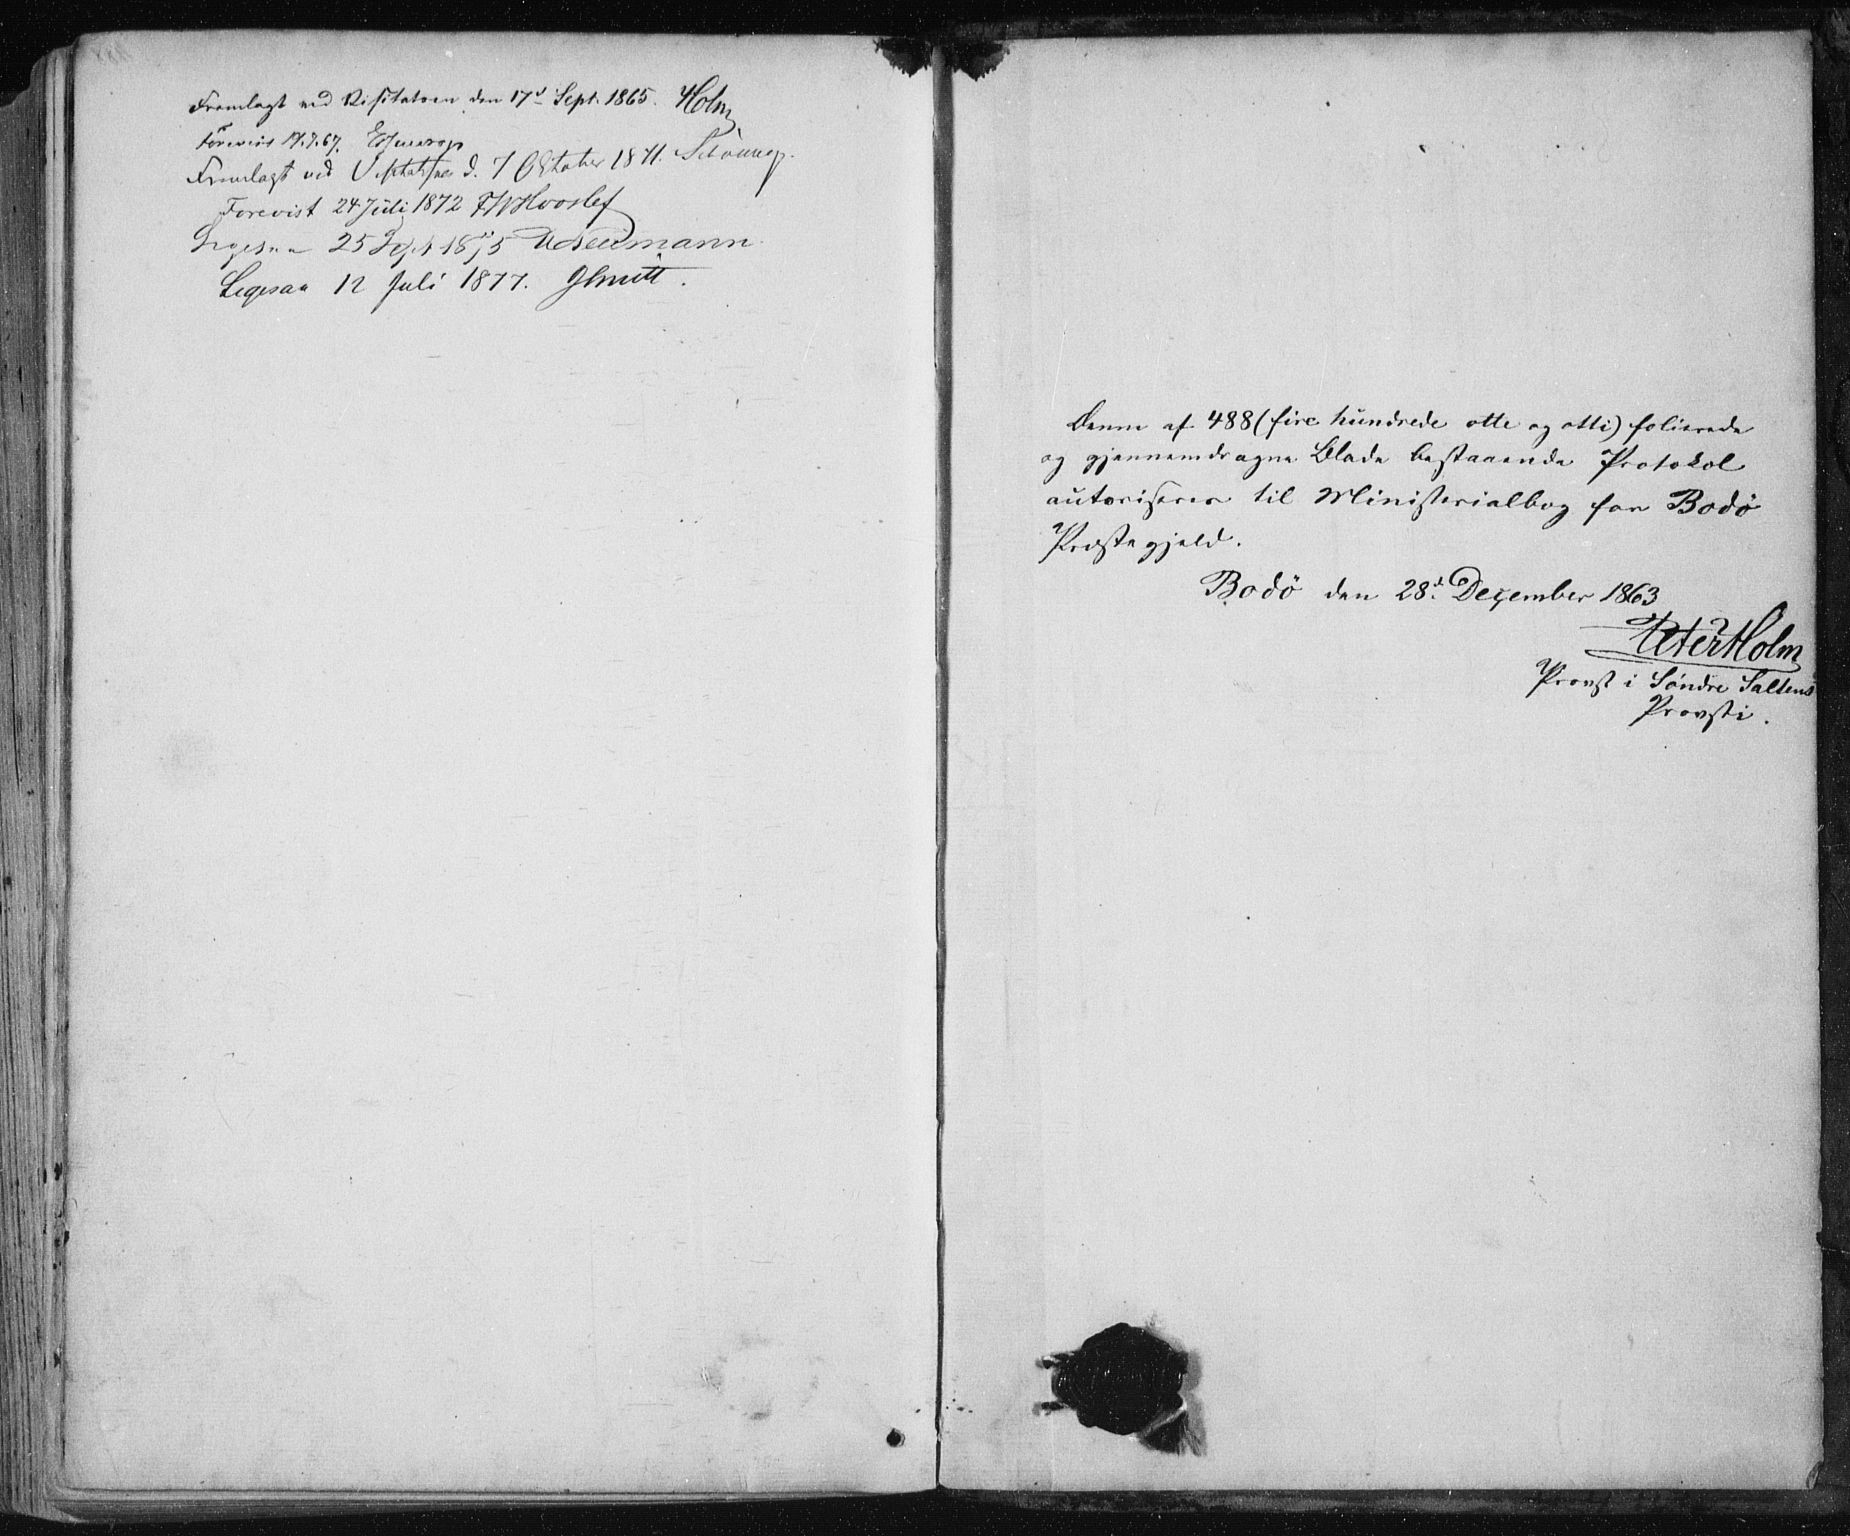 Fremlagt ved Visitatsen den 17d Sept. 1865. Holm
Forevist 17.7.67.
Fremlagt ved Visitatsen d. 7 Oktober 1871.
Forevist 24 Juli 1872 FWHvoslef
Ligesaa 25 Sept 1875
Ligesaa 12 Juli 1877. JSmitt.
Denne af 488 (fire hundrede otte og otti) folierede
og gjennemdragne Blade bestaaende Protokol
autoriseres til Ministerialbog for Bodø
Præstegjeld.
Bodø den 28d. December 1863
Peter Holm
Provst i Søndre Saltens
Provsti.